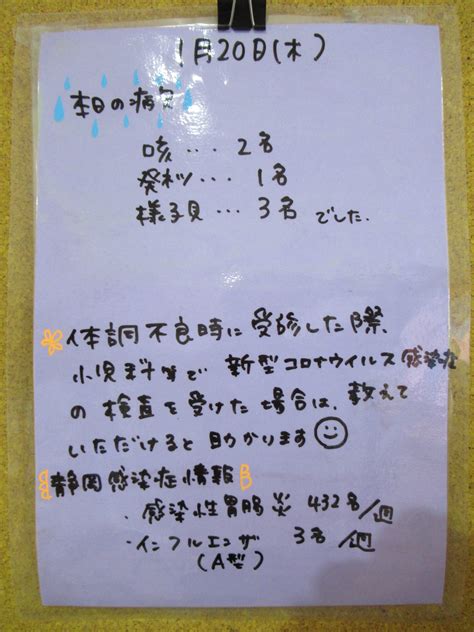 1月20日(木)
本日の病欠
咳… 2名
発熱… 1名
様子見… 3名 でした.
体調不良時に受診した際、
小児科等で 新型コロナウイルス感染症
の 検査を受けた場合は、教えて
いただけると助かります
静岡感染症情報
・感染性胃腸炎 432名/週
・インフルエンザ 3名/週
(A型)